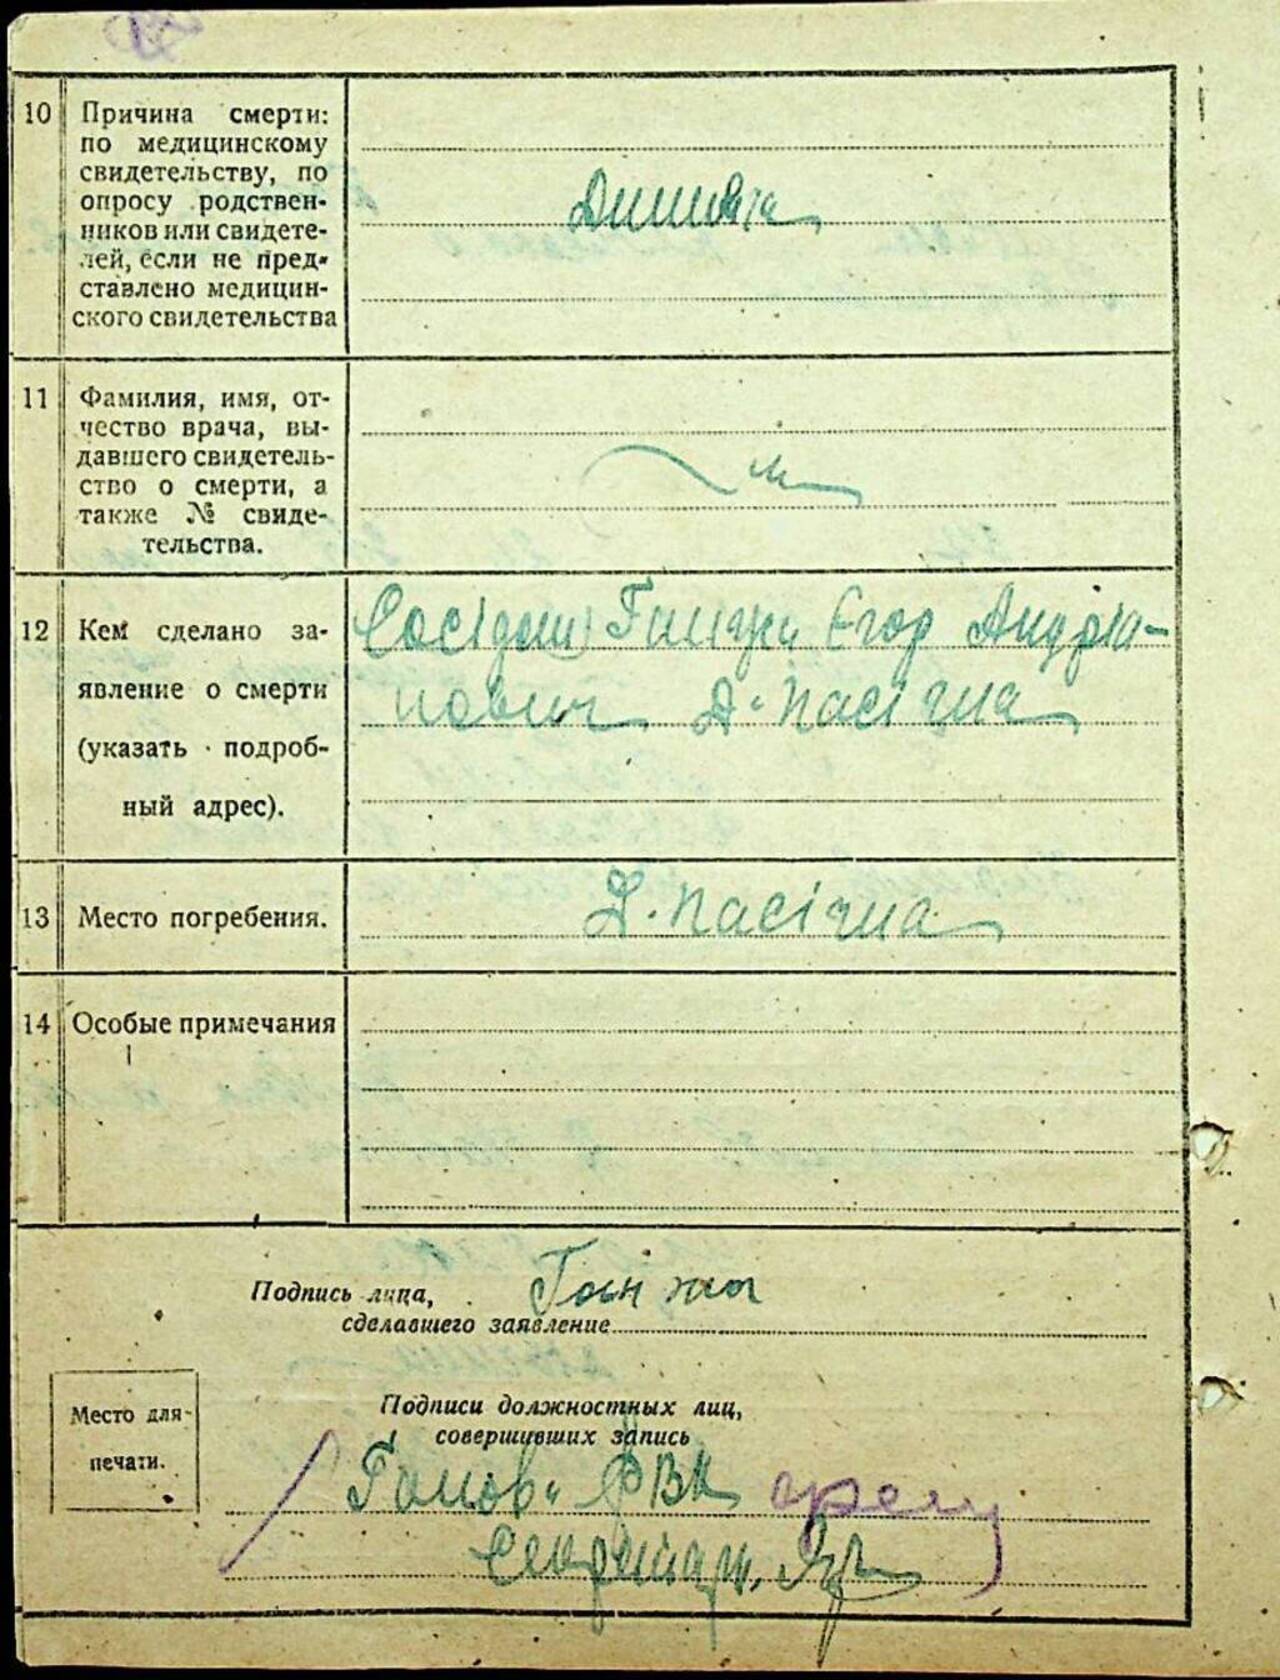 10 Причина смерти:
по медицинскому
свидетельству, по
опросу родствен-
ников или свидете-
лей, если не пред-
ставлено медицин-
ского свидетельства
11 Фамилия, имя, от-
чество врача, вы-
давшего свидетель-
ство о смерти, а
также № свиде-
тельства.
12 Кем сделано за-
явление о смерти
(указать подроб-
ный адрес).
Єгор Андріа-
нович
13 Место погребения.
14 Особые примечания
Подпись лица,
сделавшего заявление
Место для
печати.
Подписи должностных лиц,
совершивших запись
Голов.
Секретарь